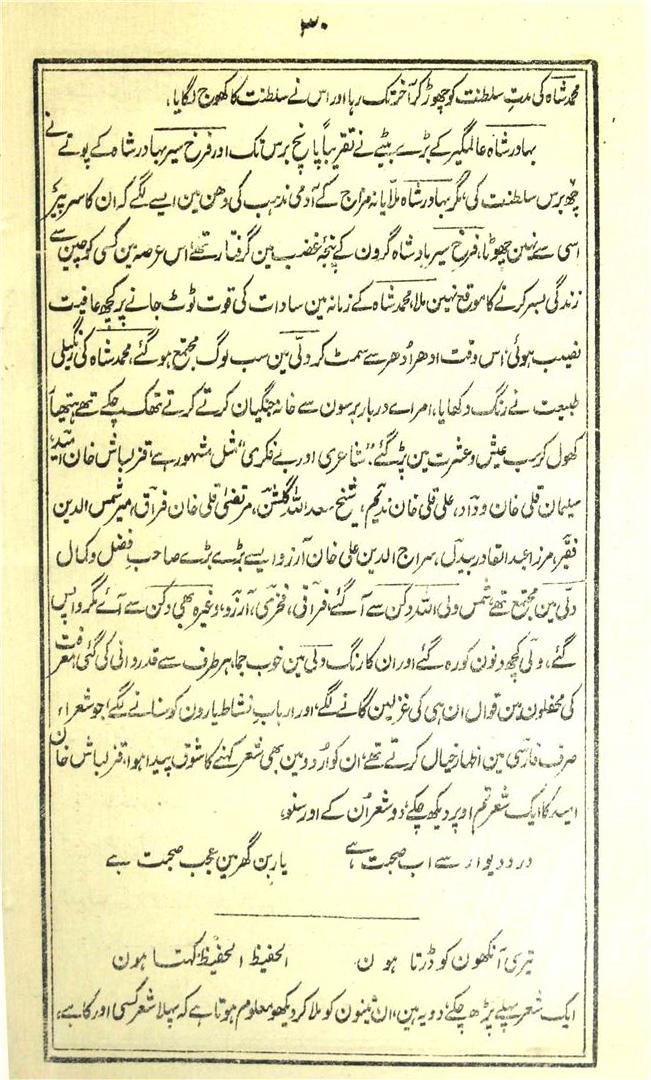 ۳۰
محمد شاہ کی مدتِ سلطنت کو چھوڑ کر آخر تک رہا اور اس نے سلطنت کا کھوج لگایا،
بہادر شاہ عالمگیر کے بڑے بیٹے نے تقریباً پانچ برس تک اور فرخ سیر بہادر شاہ کے پوتے نے
چھ برس سلطنت کی، مگر بہادر شاہ ملایانہ مزاج کے آدمی مذہب کی دھن مین ایسے لگے کہ ان کا سر پیر
اسی سے نہین چھوٹا، فرخ سیر بادشاہ گرون کے پنجۂ غضب مین گرفتار تھے اس عرصہ مین کسی کو چین سے
زندگی بسر کرنے کا موقع نہین ملا، محمد شاہ کے زمانہ مین سادات کی قوت ٹوٹ جانے پر کچھ عافیت
نصیب ہوئی، اس وقت ادھر اُدھر سے سمٹ کر دلّی مین سب لوگ مجتمع ہو گئے، محمد شاہ کی رنگیلی
طبیعت نے رنگ دکھایا، امراے دربار برسون سے خانہ جنگیان کرتے کرتے تھک چکے تھے ہتھیار
کھول کر سب عیش و عشرت مین پڑ گئے، "شاعری اور بے فکری" مثل مشہور ہے، قزلباش خان امید،
سلیمان قلی خان وداد، علی قلی خان ندیم، شیخ سعد اللہ گلشن، مرتضیٰ قلی خان فراق، میر شمس الدین
فقیر، مرزا عبد القادر بیدل، سراج الدین علی خان آرزو ایسے بڑے بڑے صاحبِ فضل و کمال
دلّی مین مجتمع تھے، شمس ولی اللہ دکن سے آ گئے، فراقی، فخری، آزرو، وغیرہ بھی دکن سے آے مگر واپس
گئے، ولی کچھ دنون کو رہ گئے اور ان کا رنگ دلّی مین خوب جما، ہر طرف سے قدردانی کی گئی، معرفت
کی محفلون مین قوال ان ہی کی غزلین گانے لگے، اور اربابِ نشاط یارون کو سنانے لگے، جو شعراء
صرف فارسی مین اظہارِ خیال کرتے تھے، ان کو اُردو مین بھی شعر کہنے کا شوق پیدا ہوا، قزلباش خان
امید کا ایک شعر تم اوپر دیکھ چکے، دو شعر اُن کے اور سنو،
در و دیوار سے اب صحبت ہے یار بن گھر مین عجب صحبت ہے
تیری آنکھون کو ڈرتا ہون الحفیظ الحفیظ کہتا ہون
ایک شعر پہلے پڑھ چکے، دو یہ ہین، ان تینون کو ملا کر دیکھو معلوم ہوتا ہے کہ پہلا شعر کسی اور کا ہے،